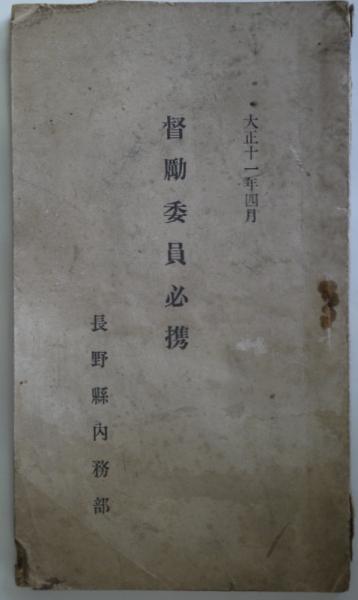 大正十一年四月
督勵委員必携
長野縣內務部